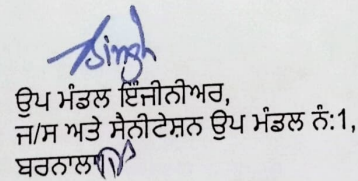 Singh
ਉਪ ਮੰਡਲ ਇੰਜੀਨੀਅਰ,
ਜ/ਸ ਅਤੇ ਸੈਨੀਟੇਸ਼ਨ ਉਪ ਮੰਡਲ ਨੰ:1,
ਬਰਨਾਲਾ